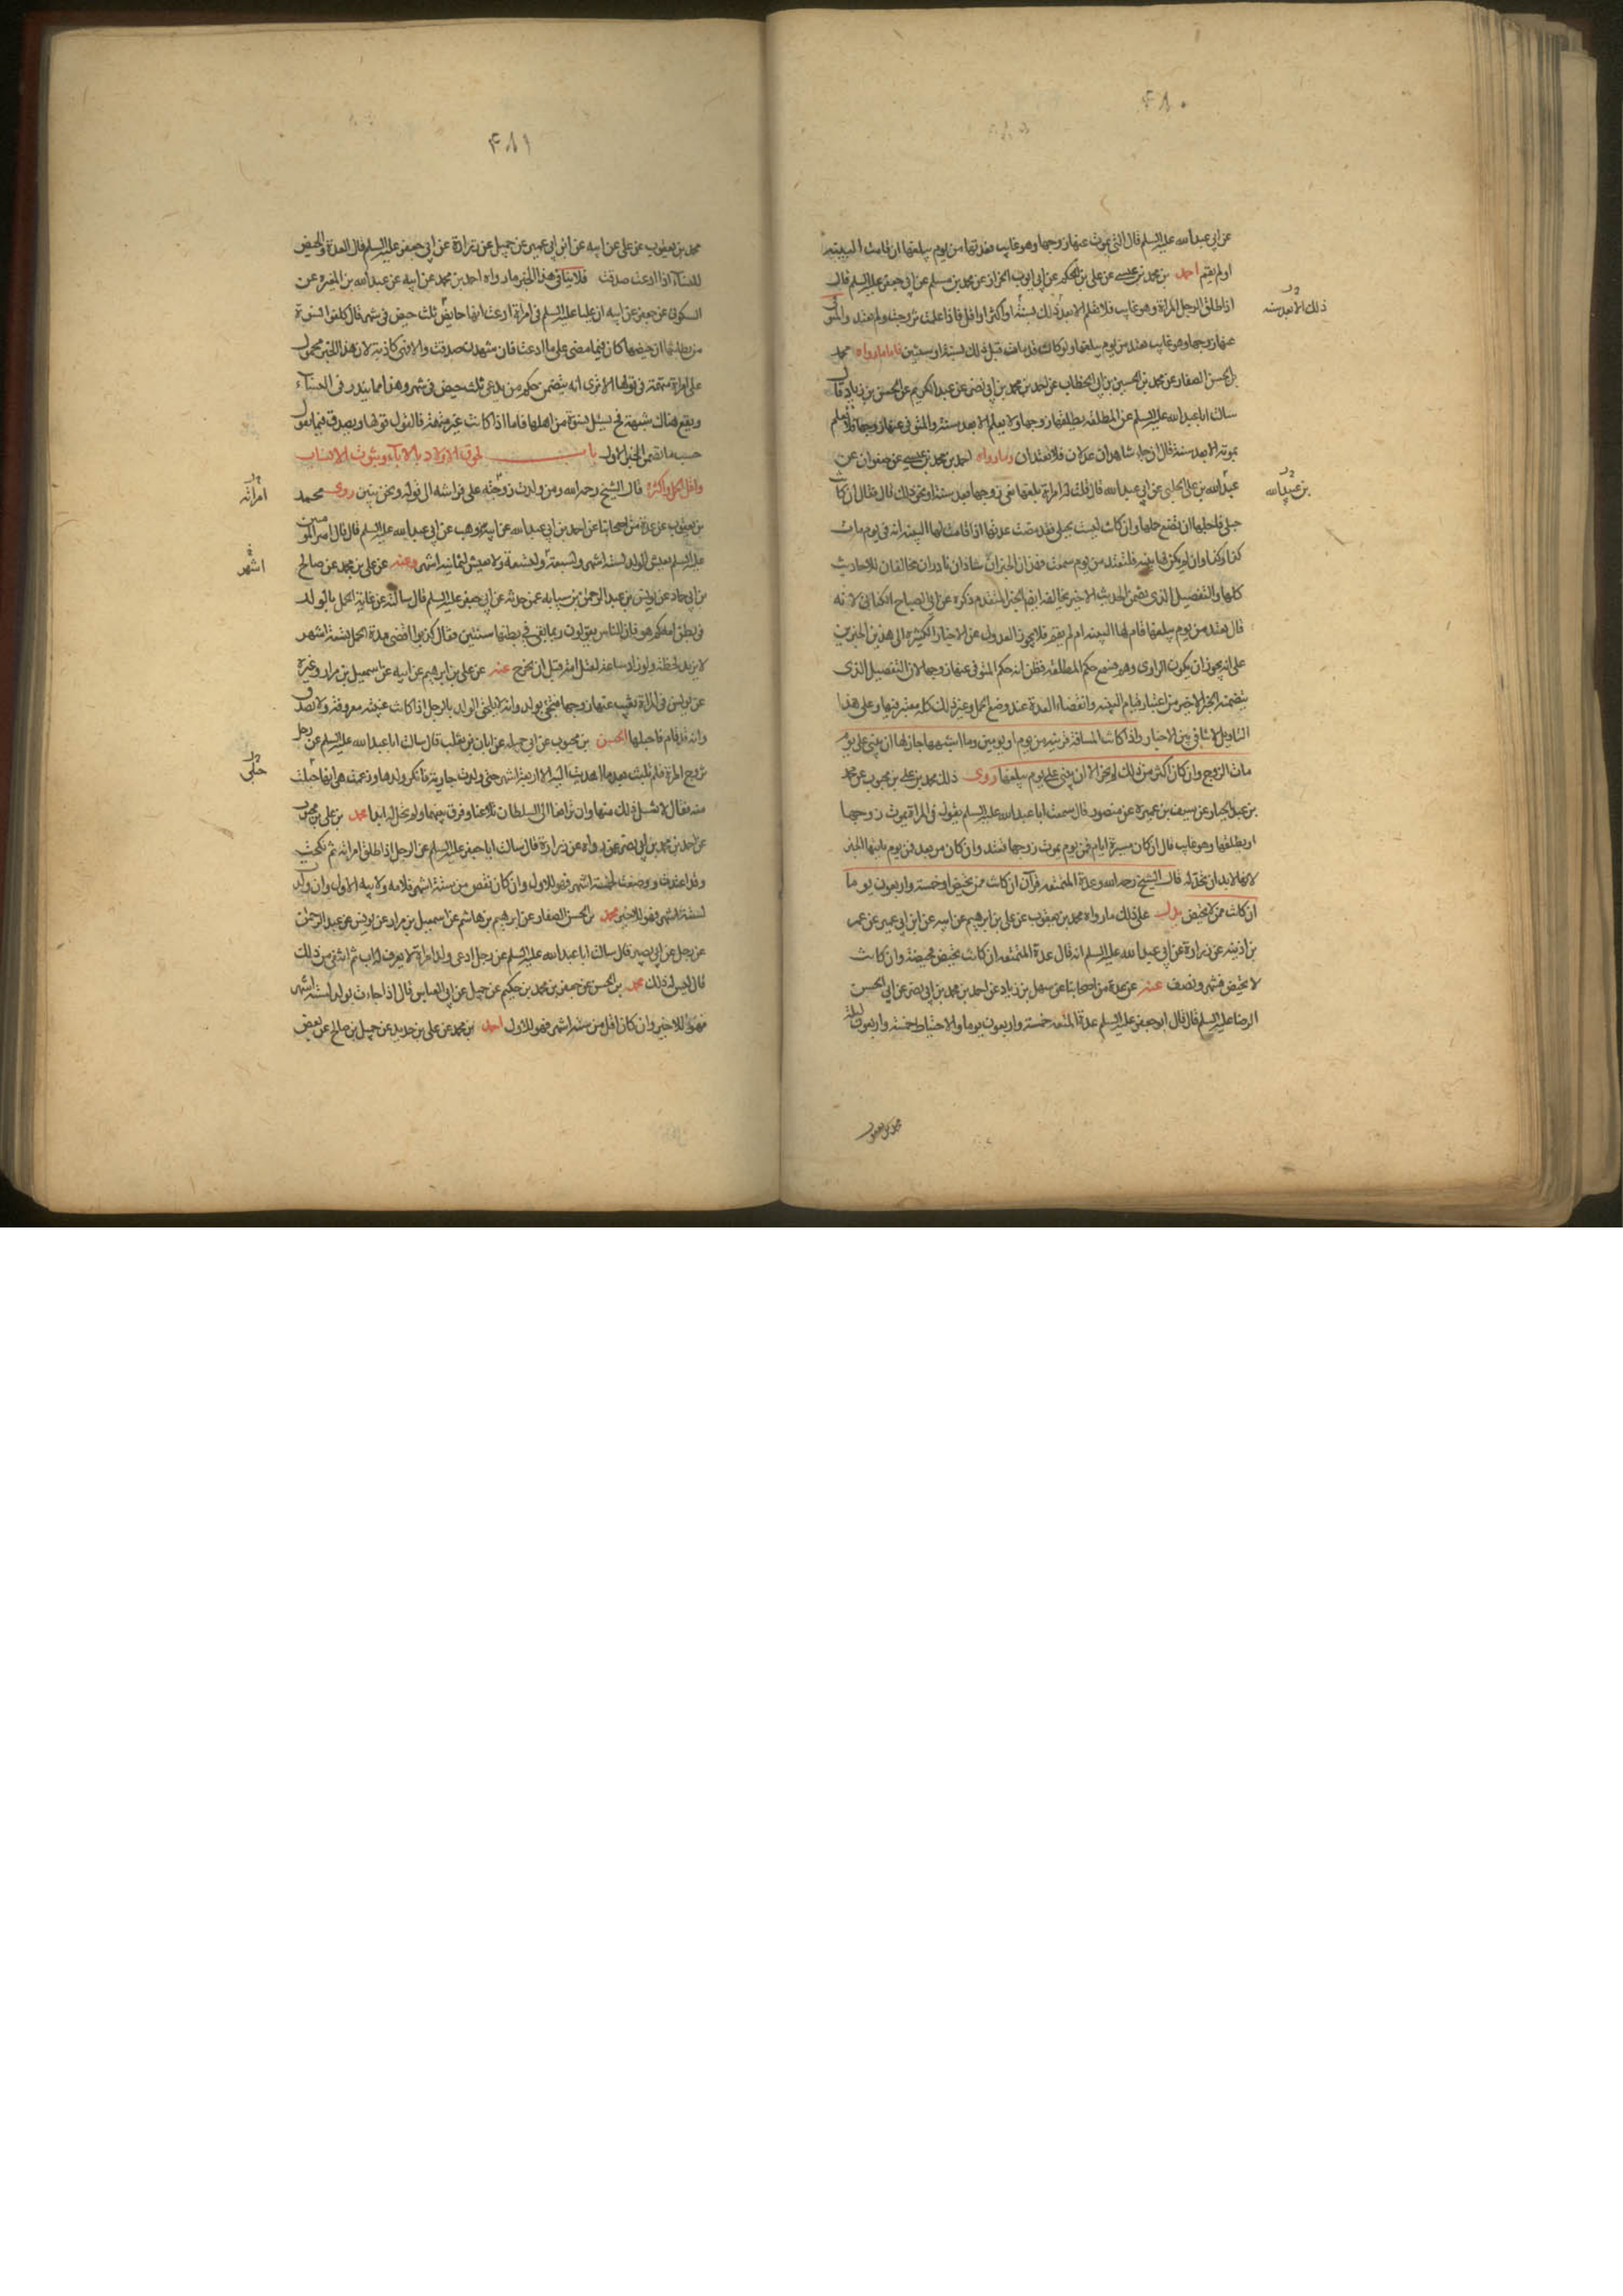 ۴۸۰
عن ابي عبد الله عليه السلم قال التي يموت عنها زوجها وهو غايب فعدتها من يوم يبلغها ان قامت البينة
او لم يقم احمد بن محمد بن عيسى عن علي بن الحكم عن ابي ايوب الخزاز عن محمد بن مسلم عن ابي جعفر عليه السلم قال
اذا طلق الرجل المراة وهو غايب فلا تعلم الا بعد ذلك بسنة او اكثر او اقل فاذا علمت تزوجت ولم تعتد والمتوفى
عنها زوجها وهو غايب تعتد من يوم يبلغها ولو كانت قد مات قبل ذلك بسنة او سنتين فاما ما رواه محمد
بن الحسن الصفار عن محمد بن الحسين بن ابي الخطاب عن احمد بن محمد بن ابي نصر عن عبد الكريم عن الحسن بن زياد قال
سالت ابا عبد الله عليه السلم عن المطلقة يطلقها زوجها ولا يعلم الا بعد سنة والمتوفى عنها زوجها فلا تعلم
بموته الا بعد سنة قال ان جاء شاهدان عدلان فلا تعتدان وما رواه احمد بن محمد بن عيسى عن صفوان عن
عبد الله بن علي الحلبي عن ابي عبد الله قال قلت له امراة بلغها نعي زوجها بعد سنة او نحو ذلك قال فقال ان كانت
حبلى فاجلها ان تضع حملها وان كانت ليست بحبلى فقد مضت عدتها اذا قامت لها البينة انه في يوم مات
كذا وكذا وان لم يكن لها بينة فلتعتد من يوم سمعت فهذان الخبران شاذان نادران مخالفان للاحاديث
كلها والتفصيل الذي تضمن الحديث الاخير يخالفه ايضا الخبر المتقدم ذكره عن ابي الصباح الكناني لانه
قال تعتد من يوم يبلغها قام لها البينة ام لم يقم فلا يجوز العدول عن الاخبار الكثيرة الى هذين الخبرين
على انه يجوز ان يكون الراوي وهم فسمع حكم المطلقة فظن انه حكم المتوفى عنها زوجها لان التفصيل الذي
يتضمنه الخبر الاخير من اعتبار قيام البينة وانقضاء العدة عند وضع الحمل وغير ذلك كله معتبر فيها وعلى هذا
التاويل لا تنافي بين الاخبار واذا كانت المسافة قريبة من يوم او يومين وما اشبههما جاز لها ان تبني على يوم
مات الزوج وان كان اكثر من ذلك لم يجز الا ان تبني على يوم يبلغها روى ذلك محمد بن علي بن محبوب عن محمد
بن عبد الجبار عن سيف بن عميرة عن منصور قال سمعت ابا عبد الله عليه السلم يقول في المراة يموت زوجها
او يطلقها وهو غايب قال ان كان مسيرة ايام فمن يوم يموت زوجها تعتد وان كان من بعد فمن يوم ياتيها الخبر
لانها لا بد ان تحد له قال الشيخ رحمه الله وعدة المتمتعة قرآن ان كانت ممن تحيض او خمسة واربعون يوما
ان كانت ممن لا تحيض يدل على ذلك ما رواه محمد بن يعقوب عن علي بن ابرهيم عن ابيه عن ابن ابي عمير عن عمر
بن اذينة عن زرارة عن ابي عبد الله عليه السلم انه قال عدة المتمتعة ان كانت تحيض فحيضة وان كانت
لا تحيض فشهر ونصف عنه عن عدة من اصحابنا عن سهل بن زياد عن احمد بن محمد بن ابي نصر عن ابي الحسن
الرضا عليه السلم قال قال ابو جعفر عليه السلم عدة المتعة خمسة واربعون يوما والاحتياط خمسة واربعون ليلة
ذلك الا بعد سنة
بن عبيد الله
محمد بن يعقوب
۴۸۱
محمد بن يعقوب عن علي عن ابيه عن ابن ابي عمير عن جميل عن زرارة عن ابي جعفر عليه السلم قال العدة والحيض
للنساء اذا ادعت صدقت فلا ينافي هذا الخبر ما رواه احمد بن محمد عن ابيه عن عبد الله بن المغيرة عن
السكوني عن جعفر عن ابيه ان عليا عليه السلم في امراة ادعت انها حايض ثلث حيض في شهر قال كلفوا النسوة
من بطانتها ان حيضها كان فيما مضى على ما ادعت فان شهدت صدقت والا فهي كاذبة لان هذا الخبر محمول
على امراة متهمة في قولها الا ترى انه يتضمن حكم من يدعي ثلث حيض في شهر وهذا مما يندر في النساء
ويقع هناك شبهة فح يسئل نسوة من اهلها فاما اذا كانت غير متهمة فالقول قولها ويصدق فيما يقول
حسب ما تقمن الخبر الاول باب لحوق الاولاد بالاباء وثبوت الانساب
واقل الحمل واكثره قال الشيخ رحمه الله ومن ولدت زوجته على فراشه الى قوله ونحن نبين روى محمد
بن يعقوب عن عدة من اصحابنا عن احمد بن ابي عبد الله عن ابيه عن وهب عن ابي عبد الله عليه السلم قال قال امير المومنين
عليه السلم يعيش الولد لستة اشهر ولسبعة ولتسعة ولا يعيش لثمانية اشهر وعنه عن علي بن محمد عن صالح
بن ابي حماد عن يونس بن عبد الرحمن بن سيابه عمن حدثه عن ابي جعفر عليه السلم قال سالته عن غاية الحمل بالولد
في بطن امه كم هو فان الناس يقولون ربما بقي في بطنها سنتين فقال كذبوا اقصى مدة الحمل تسعة اشهر
لا يزيد لحظة ولو زاد ساعة لقتل امه قبل ان يخرج عنه عن علي بن ابرهيم عن ابيه عن اسمعيل بن مرار وغيره
عن يونس في المراة يغيب عنها زوجها فتجئ بولد وانه لا يلحق الولد بالرجل اذا كانت غيبته معروفة ولا تصدق
وانه قد قام فاحبلها الحسن بن محبوب عن ابي جميله عن ابان بن تغلب قال سالت ابا عبد الله عليه السلم عن رجل
تزوج المراة فلم تلبث بعد ما اهديت اليه الا اربعة اشهر حتى ولدت جارية فانكر ولدها وزعمت هي انها حبلت
منه فقال لا تقبل ذلك منها وان ترافعا الى السلطان تلاعنا وفرق بينهما ولم تحل له ابدا محمد بن علي بن محبوب
عن احمد بن محمد بن ابي نصر عمن رواه عن زرارة قال سالت ابا جعفر عليه السلم عن الرجل اذا طلق امراته ثم نكحت
وقد اعتدت ووضعت لخمسة اشهر فهو للاول وان كان نقص من ستة اشهر فلامه ولابيه الاول وان ولدت
لستة اشهر فهو للاخير محمد بن الحسن الصفار عن ابرهيم بن هاشم عن اسمعيل بن مرار عن يونس عن عبد الرحمن
عن رجل عن ابي بصير قال سالت ابا عبد الله عليه السلم عن رجل ادعى ولد امراة لا يعرف له اب ثم انتفى من ذلك
قال ليس له ذلك محمد بن الحسن عن جعفر بن محمد بن حكيم عن جميل عن ابي العباس قال اذا جاءت بولد لستة اشهر
فهو للاخير وان كان اقل من ستة اشهر فهو للاول احمد بن محمد عن علي بن حديد عن جميل بن صالح عن بعض
امراته
اشهر
حتى